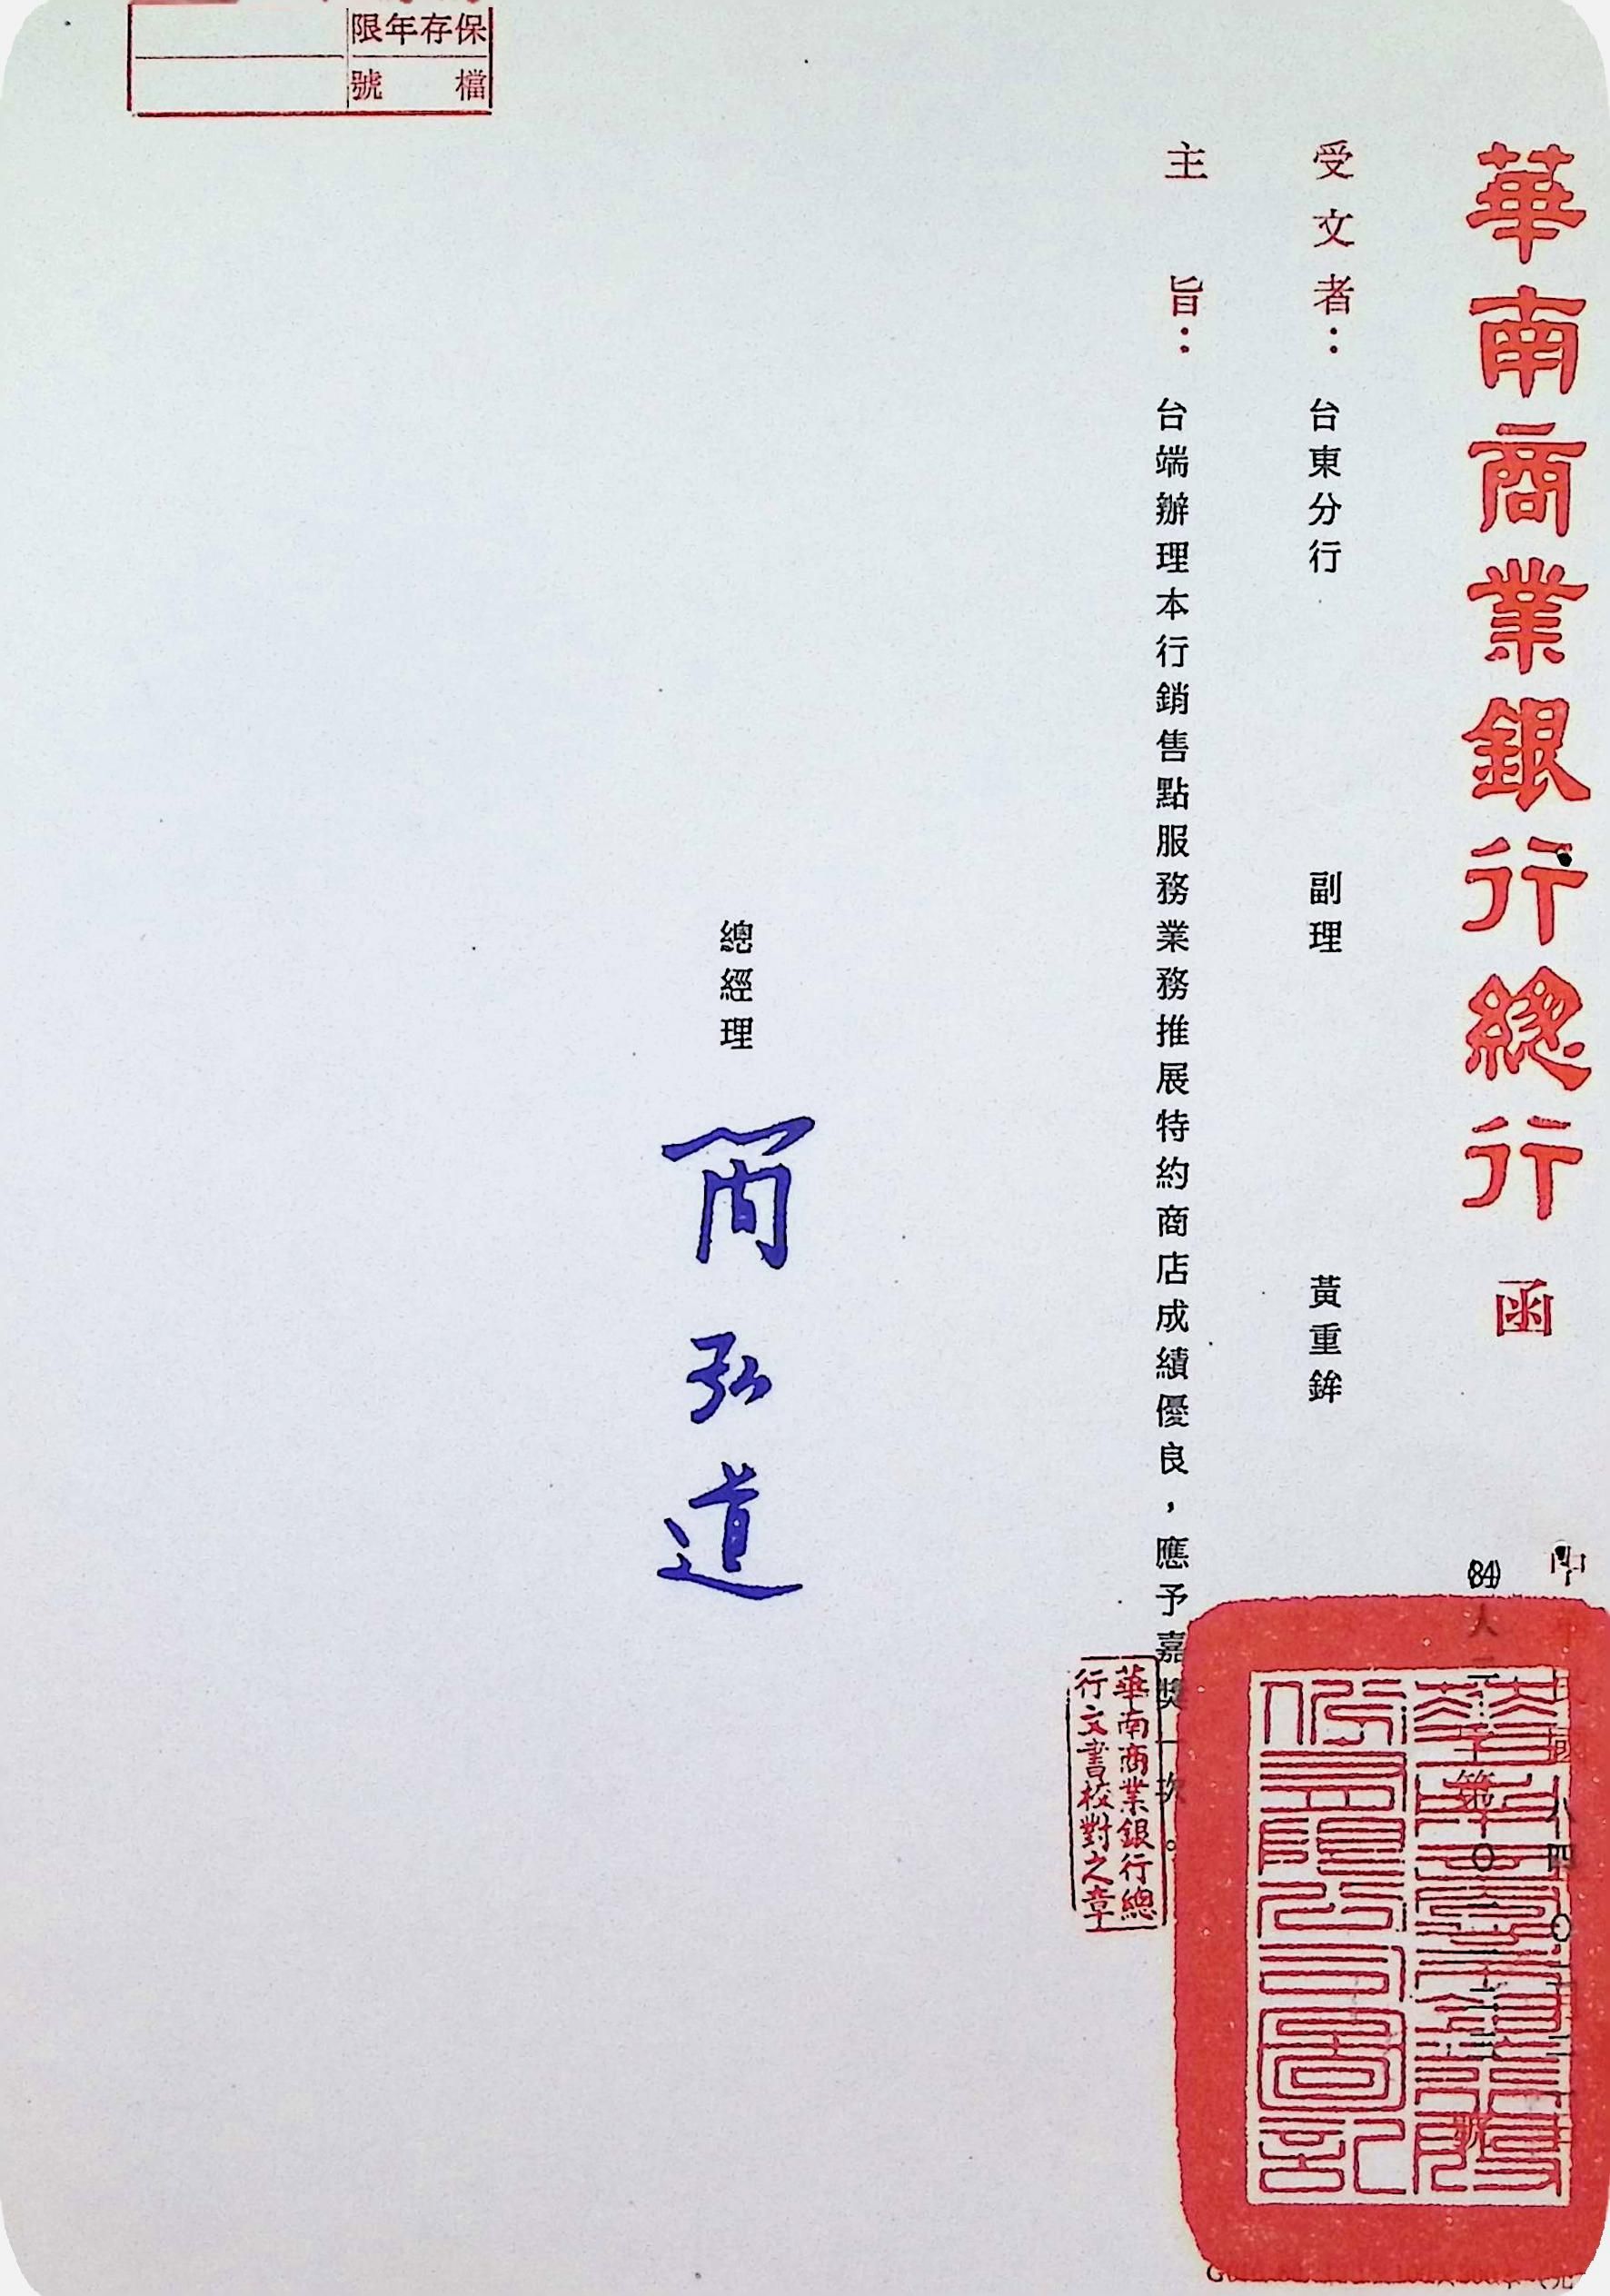 華南商業銀行總行 函
受文者：台東分行 副理 黃重鉾
主旨：台端辦理本行銷售點服務業務推展特約商店成績優良，應予嘉獎一次。
總經理 简弘道
保存年限
檔號
華南商業銀行總
行文書校對之章
(84)人